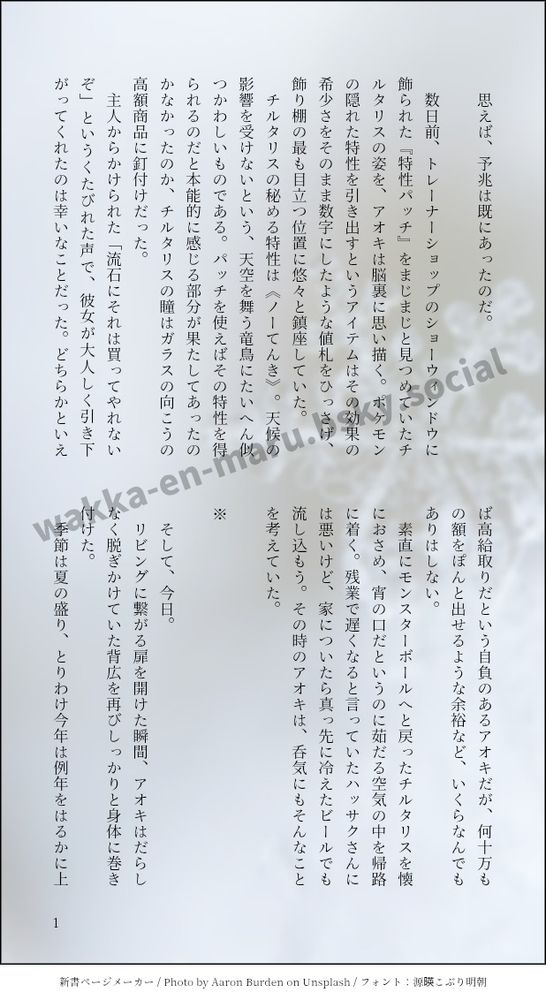 思えば、予兆は既にあったのだ。
数日前、トレーナーショップのショーウィンドウに
飾られた『特性パッチ』をまじまじと見つめていたチ
ルタリスの姿を、アオキは脳裏に思い描く。ポケモン
の隠れた特性を引き出すというアイテムはその効果の
希少さをそのまま数字にしたような値札をひっさげ、
飾り棚の最も目立つ位置に悠々と鎮座していた。
チルタリスの秘める特性は《ノーてんき》。天候の
影響を受けないという、天空を舞う竜鳥にたいへん似
つかわしいものである。パッチを使えばその特性を得
られるのだと本能的に感じる部分が果たしてあったの
かなかったのか、チルタリスの瞳はガラスの向こうの
高額商品に釘付けだった。
主人からかけられた「流石にそれは買ってやれない
ぞ」というくたびれた声で、彼女が大人しく引き下
がってくれたのは幸いなことだった。どちらかといえ
ば高給取りだという自負のあるアオキだが、何十万も
の額をぽんと出せるような余裕など、いくらなんでも
ありはしない。
素直にモンスターボールへと戻ったチルタリスを懐
におさめ、宵の口だというのに茹だる空気の中を帰路
に着く。残業で遅くなると言っていたハッサクさんに
は悪いけど、家についたら真っ先に冷えたビールでも
流し込もう。その時のアオキは、呑気にもそんなこと
を考えていた。
※
そして、今日。
リビングに繋がる扉を開けた瞬間、アオキはだらし
なく脱ぎかけていた背広を再びしっかりと身体に巻き
付けた。
季節は夏の盛り、とりわけ今年は例年をはるかに上
1
wakka-en-maru.bsky.social
新書ページメーカー / Photo by Aaron Burden on Unsplash / フォント：源暎こぶり明朝